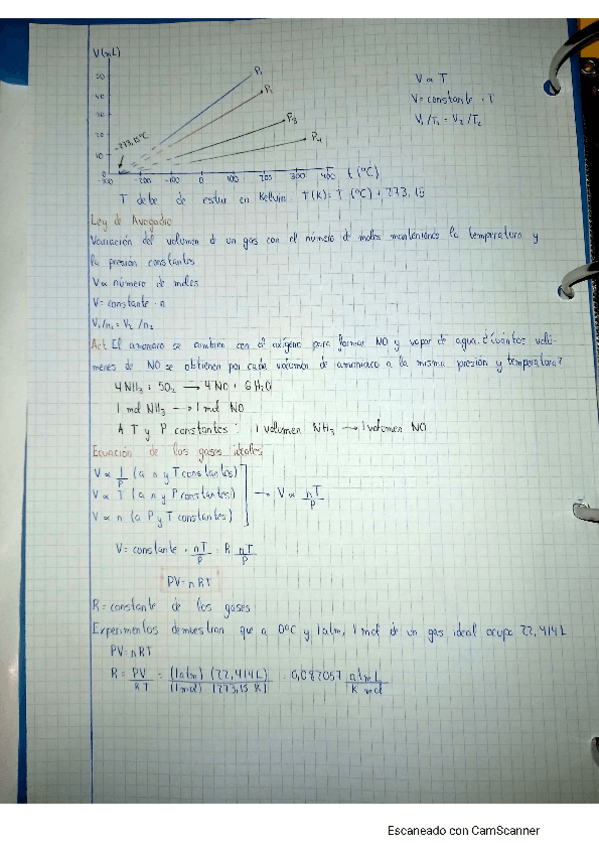 V(mL)
50
40
30
20
10
0
P₁
P₂
P₃
P₄
-273,15ºC
-300 -200 -100 0 100 200 300 400 t (ºC)
V ∝ T
V = constante · T
V₁/T₁ = V₂/T₂
T debe de estar en Kelvin T(K) = T (ºC) + 273,15
Ley de Avogadro
Variación del volumen de un gas con el número de moles manteniendo la temperatura y
la presión constantes
V ∝ número de moles
V = constante · n
V₁/n₁ = V₂/n₂
Act. El amoniaco se combina con el oxígeno para formar NO y vapor de agua. ¿Cuántos volú-
menes de NO se obtienen por cada volumen de amoniaco a la misma presión y temperatura?
4NH₃ + 5O₂ → 4NO + 6H₂O
1 mol NH₃ → 1 mol NO
A T y P constantes: 1 volumen NH₃ → 1 volumen NO
Ecuación de los gases ideales
V ∝ 1/P (a n y T constantes)
V ∝ T (a n y P constantes)
V ∝ n (a P y T constantes)
→ V ∝ nT/P
V = constante · nT/P = R nT/P
PV = nRT
R = constante de los gases
Experimentos demuestran que a 0ºC y 1 atm, 1 mol de un gas ideal ocupa 22,414 L
PV = nRT
R = PV/RT = (1atm) (22,414L)/(1mol) (273,15 K) = 0,082057 atm L/K mol
Escaneado con CamScanner